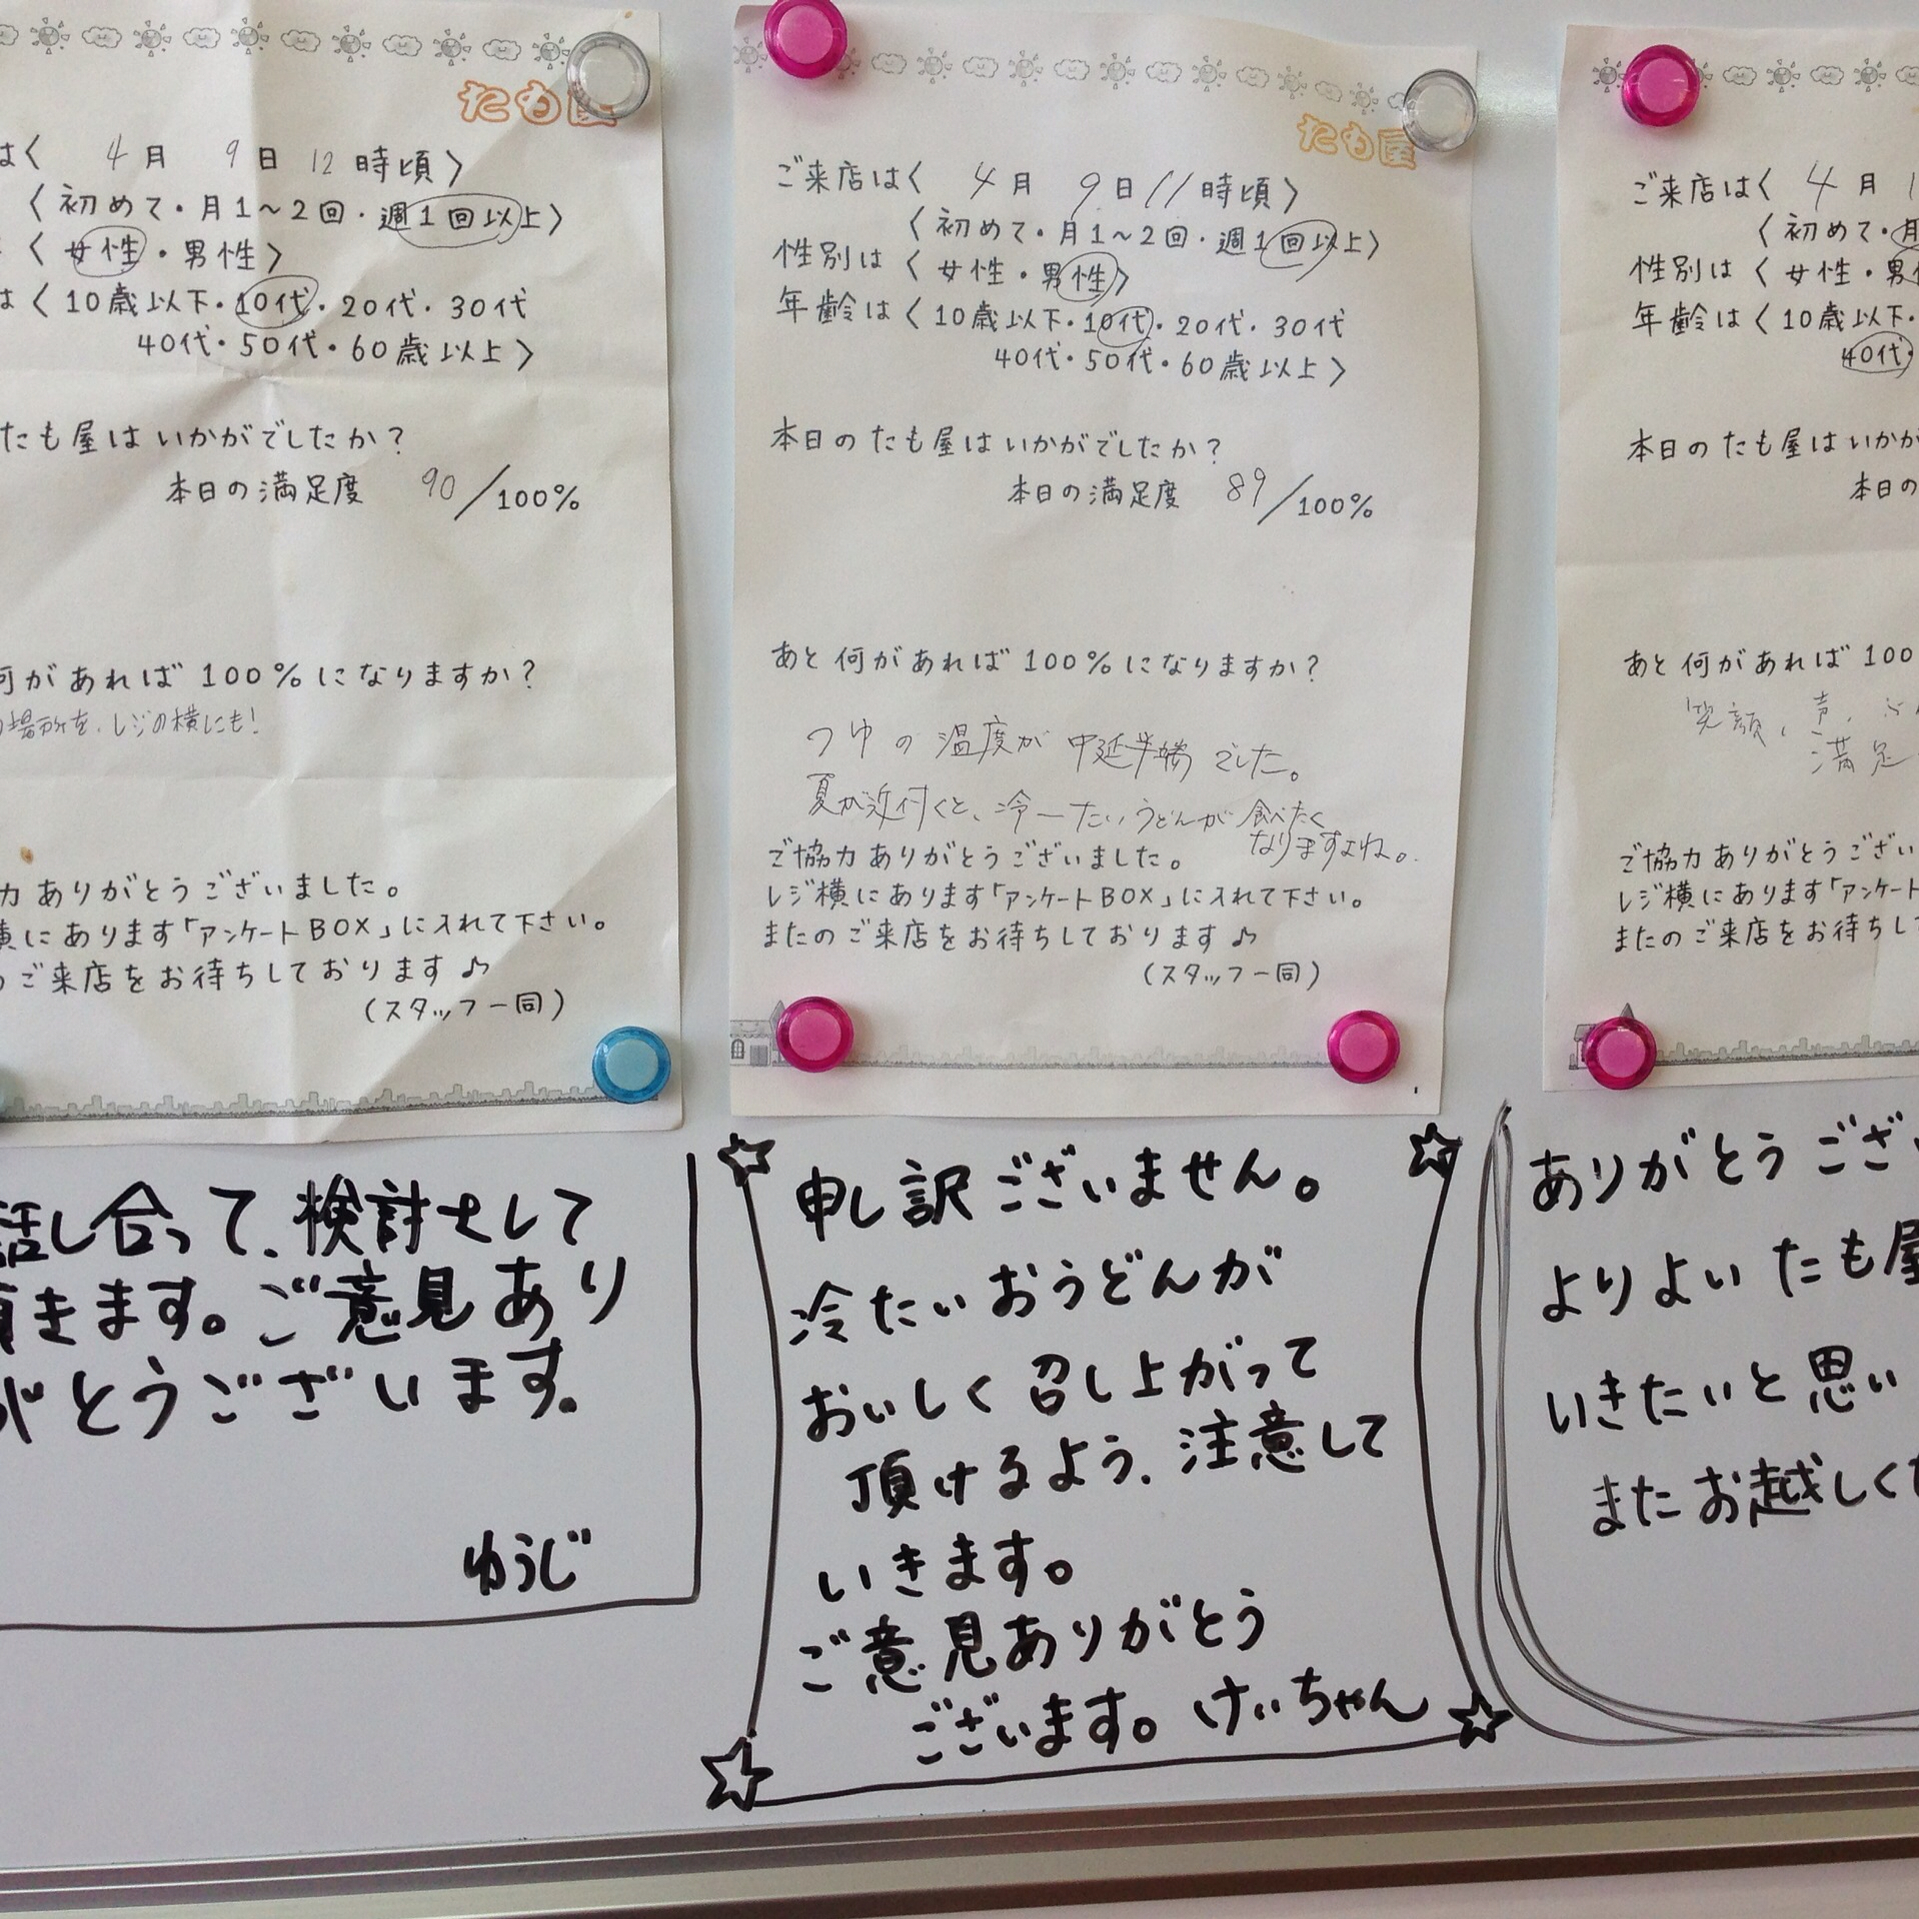 たも屋
は〈 4月 9日 12時頃〉
〈初めて・月1～2回・週1回以上〉
〈女性・男性〉
は〈10歳以下・10代・20代・30代
40代・50代・60歳以上〉
たも屋はいかがでしたか？
本日の満足度 90/100%
何があれば100%になりますか？
場所を、レジの横にも！
力ありがとうございました。
横にあります「アンケートBOX」に入れて下さい。
ご来店をお待ちしております♪
（スタッフ一同）
話し合って、検討をして
頂きます。ご意見あり
がとうございます。
ゆうじ
たも屋
ご来店は〈 4月 9日 11時頃〉
〈初めて・月1～2回・週1回以上〉
性別は〈女性・男性〉
年齢は〈10歳以下・10代・20代・30代
40代・50代・60歳以上〉
本日のたも屋はいかがでしたか？
本日の満足度 89/100%
あと何があれば100%になりますか？
つゆの温度が中延半端でした。
夏が近付くと、冷ーたいうどんが食べたく
なりますよね。
ご協力ありがとうございました。
レジ横にあります「アンケートBOX」に入れて下さい。
またのご来店をお待ちしております♪
（スタッフ一同）
申し訳ございません。
冷たいおうどんが
おいしく召し上がって
頂けるよう、注意して
いきます。
ご意見ありがとう
ございます。けいちゃん
ご来店は〈 4月 1
〈初めて・月
性別は〈女性・男
年齢は〈10歳以下・
40代・
本日のたも屋はいかが
本日の
あと何があれば100
笑顔、声、
満足
ご協力ありがとうござい
レジ横にあります「アンケート
またのご来店をお待ちして
ありがとうござい
よりよいたも屋
いきたいと思い
またお越しくだ